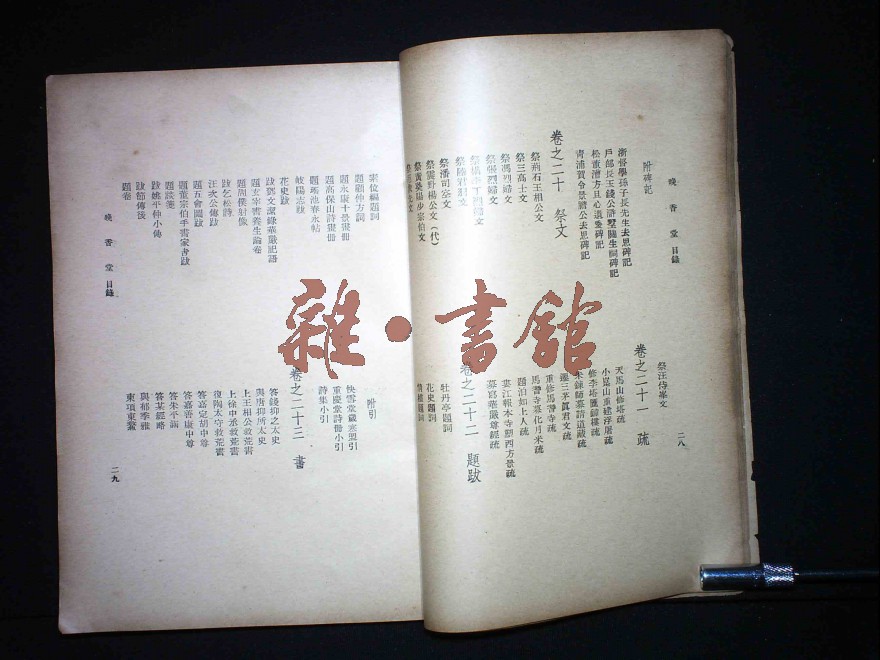 晚香堂目錄
二八
附碑記
浙督學孫子長先生去思碑記
戶部長王錢公滸墅關生祠碑記
松董漕方旦心遺愛碑記
青浦賀令景瞻公去思碑記
卷之二十 祭文
祭荊石王相公文
祭三高士文
祭馮烈婦文
祭張烈婦文
祭潘司空文
祭震野楊公文(代)
祭黃葵陽少宗伯文
祭汪侍峯文
卷之二十一 疏
天馬山修塔疏
小崑山重建浮屠疏
修李塔匯鐘樓疏
朱鍊師募請道藏疏
遷三茅眞君文疏
重修馬耆寺疏
馬耆寺募化月米疏
題泊如上人疏
婁江報本寺塑西方景疏
募寫華嚴尊經疏
卷之二十二 題跋
牡丹亭題詞
花史題詞
題顧仲方詞
題永康十景畫冊
題高保山詩畫冊
題瑤池春永帖
岐陽志跋
花史跋
跋鄧文潔錄華嚴記語
題玄宰書養生論卷
題周僕射像
跋乞松詩
汪水公傳跋
題五會圖跋
題董宗伯手書家書跋
題跋
跋姚平仲小傳
跋節傳後
題卷
附引
快雪堂歲寒盟引
重慶堂詩冊小引
詩集小引
卷之二十三 書
答錢抑之太史
與唐抑所太史
上王相公救荒書
上徐中丞救荒書
復陶太守救荒書
答嘉定胡中尊
答嘉善康中尊
答朱平涵
答某經略
與郁季雅
柬項東鰲
晚香堂目錄
二九
雜·書館